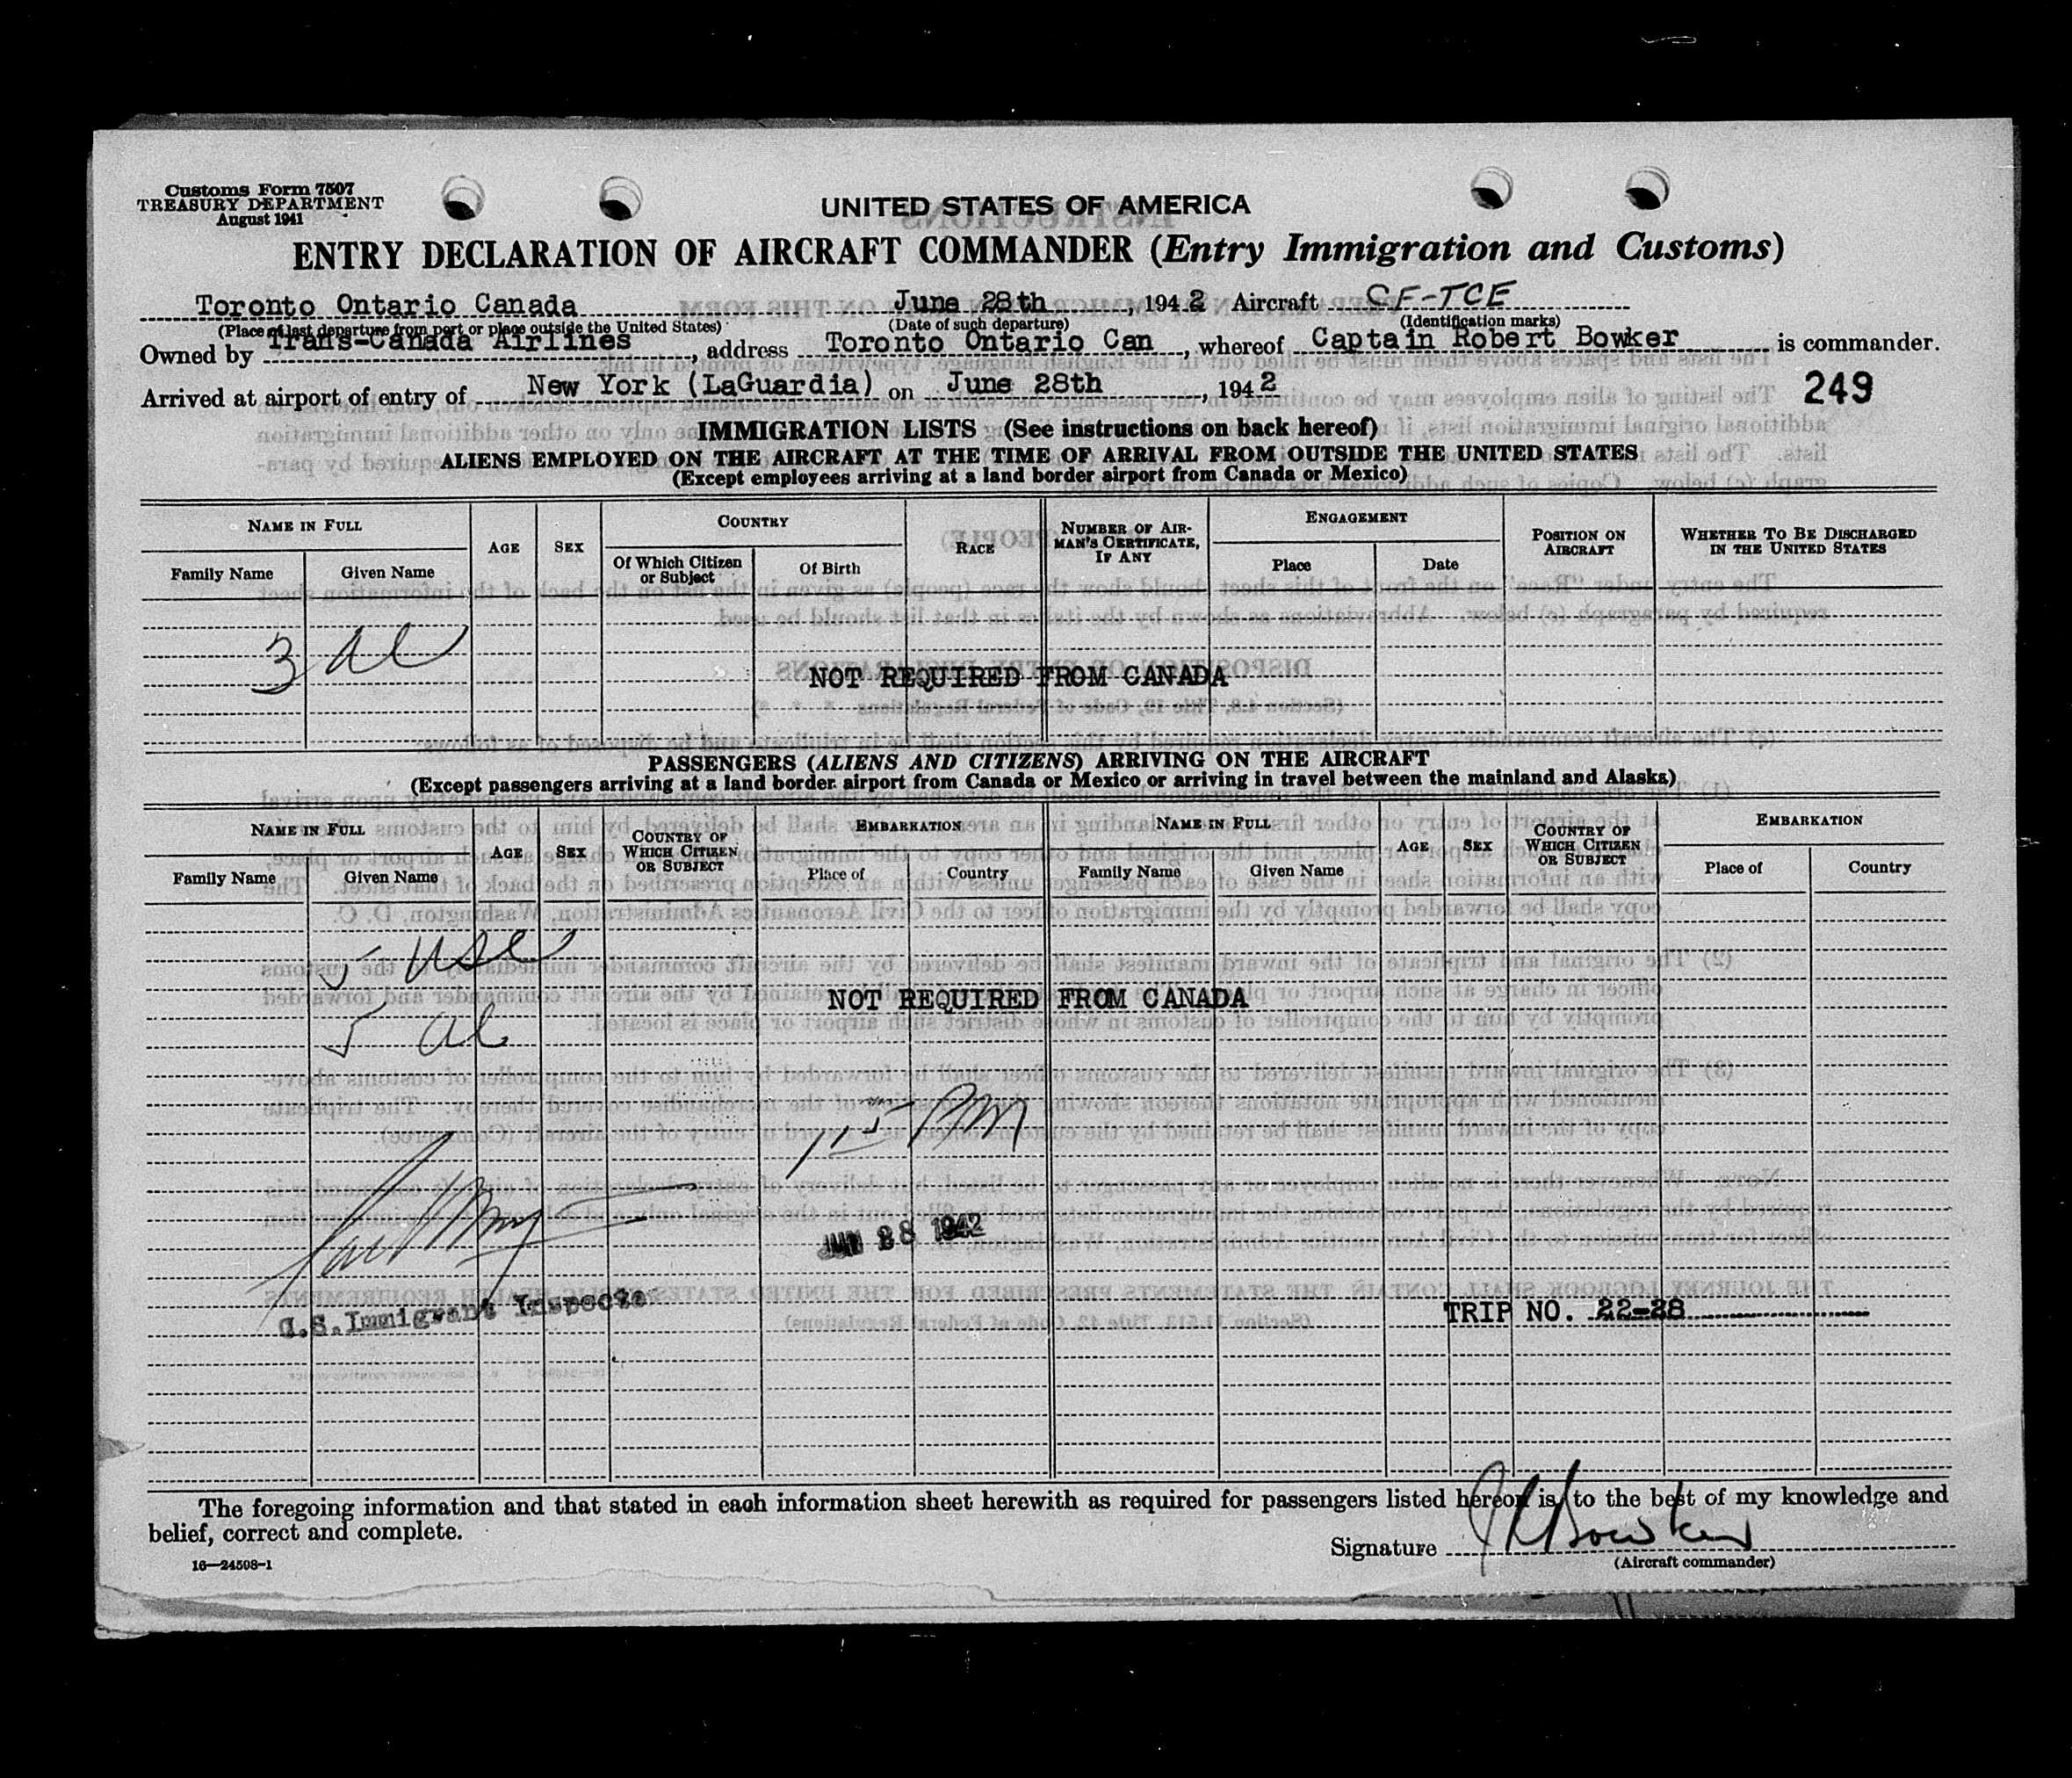 Customs Form 7507
TREASURY DEPARTMENT
August 1941
UNITED STATES OF AMERICA
ENTRY DECLARATION OF AIRCRAFT COMMANDER (Entry Immigration and Customs)
Toronto Ontario Canada June 28th, 1942 Aircraft CF-TCE
(Place of last departure from port or place outside the United States) (Date of such departure) (Identification marks)
Owned by Trans-Canada Airlines, address Toronto Ontario Can, whereof Captain Robert Bowker is commander.
Arrived at airport of entry of New York (LaGuardia) on June 28th, 1942 249
IMMIGRATION LISTS (See instructions on back hereof)
ALIENS EMPLOYED ON THE AIRCRAFT AT THE TIME OF ARRIVAL FROM OUTSIDE THE UNITED STATES
(Except employees arriving at a land border airport from Canada or Mexico)
NAME IN FULL AGE SEX COUNTRY RACE NUMBER OF AIRMAN'S CERTIFICATE, IF ANY ENGAGEMENT POSITION ON AIRCRAFT WHETHER TO BE DISCHARGED IN THE UNITED STATES
Family Name Given Name Of Which Citizen or Subject Of Birth Place Date
3 al
NOT REQUIRED FROM CANADA
PASSENGERS (ALIENS AND CITIZENS) ARRIVING ON THE AIRCRAFT
(Except passengers arriving at a land border airport from Canada or Mexico or arriving in travel between the mainland and Alaska)
NAME IN FULL AGE SEX COUNTRY OF WHICH CITIZEN OR SUBJECT EMBARKATION NAME IN FULL AGE SEX COUNTRY OF WHICH CITIZEN OR SUBJECT EMBARKATION
Family Name Given Name Place of Country Family Name Given Name Place of Country
5 USC
NOT REQUIRED FROM CANADA
5 al
PM
JUN 28 1942
U.S. Immigrant Inspector
TRIP NO. 22-28
The foregoing information and that stated in each information sheet herewith as required for passengers listed hereon is, to the best of my knowledge and
belief, correct and complete.
Signature Bowker
(Aircraft commander)
16—24508-1